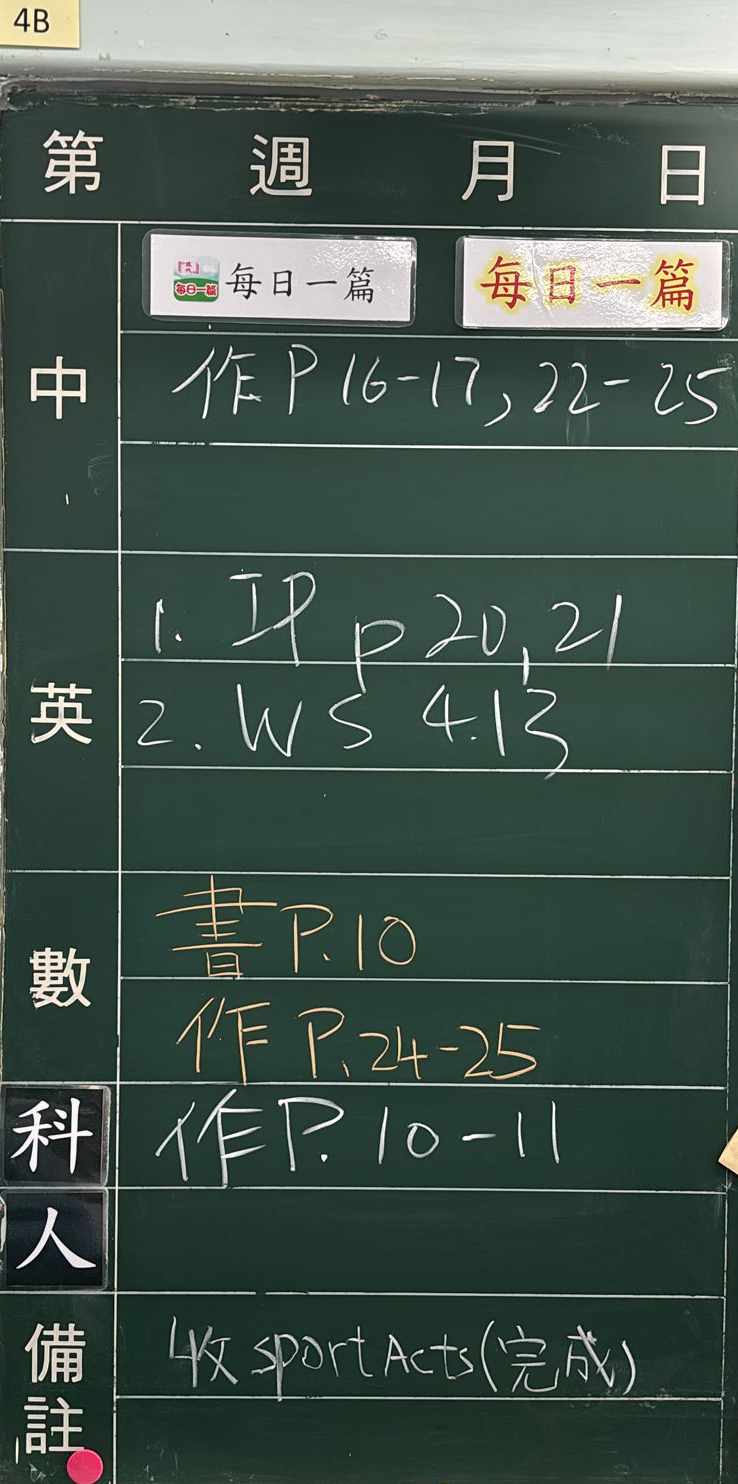 4B
第 週 月 日
中
每日一篇 每日一篇 每日一篇
作 P 16-17, 22-25
英
1. IP p 20, 21
2. WS 4.13
數
書 P. 10
作 P. 24-25
科 作 P. 10-11
人
備註
收 sport Acts (完成)